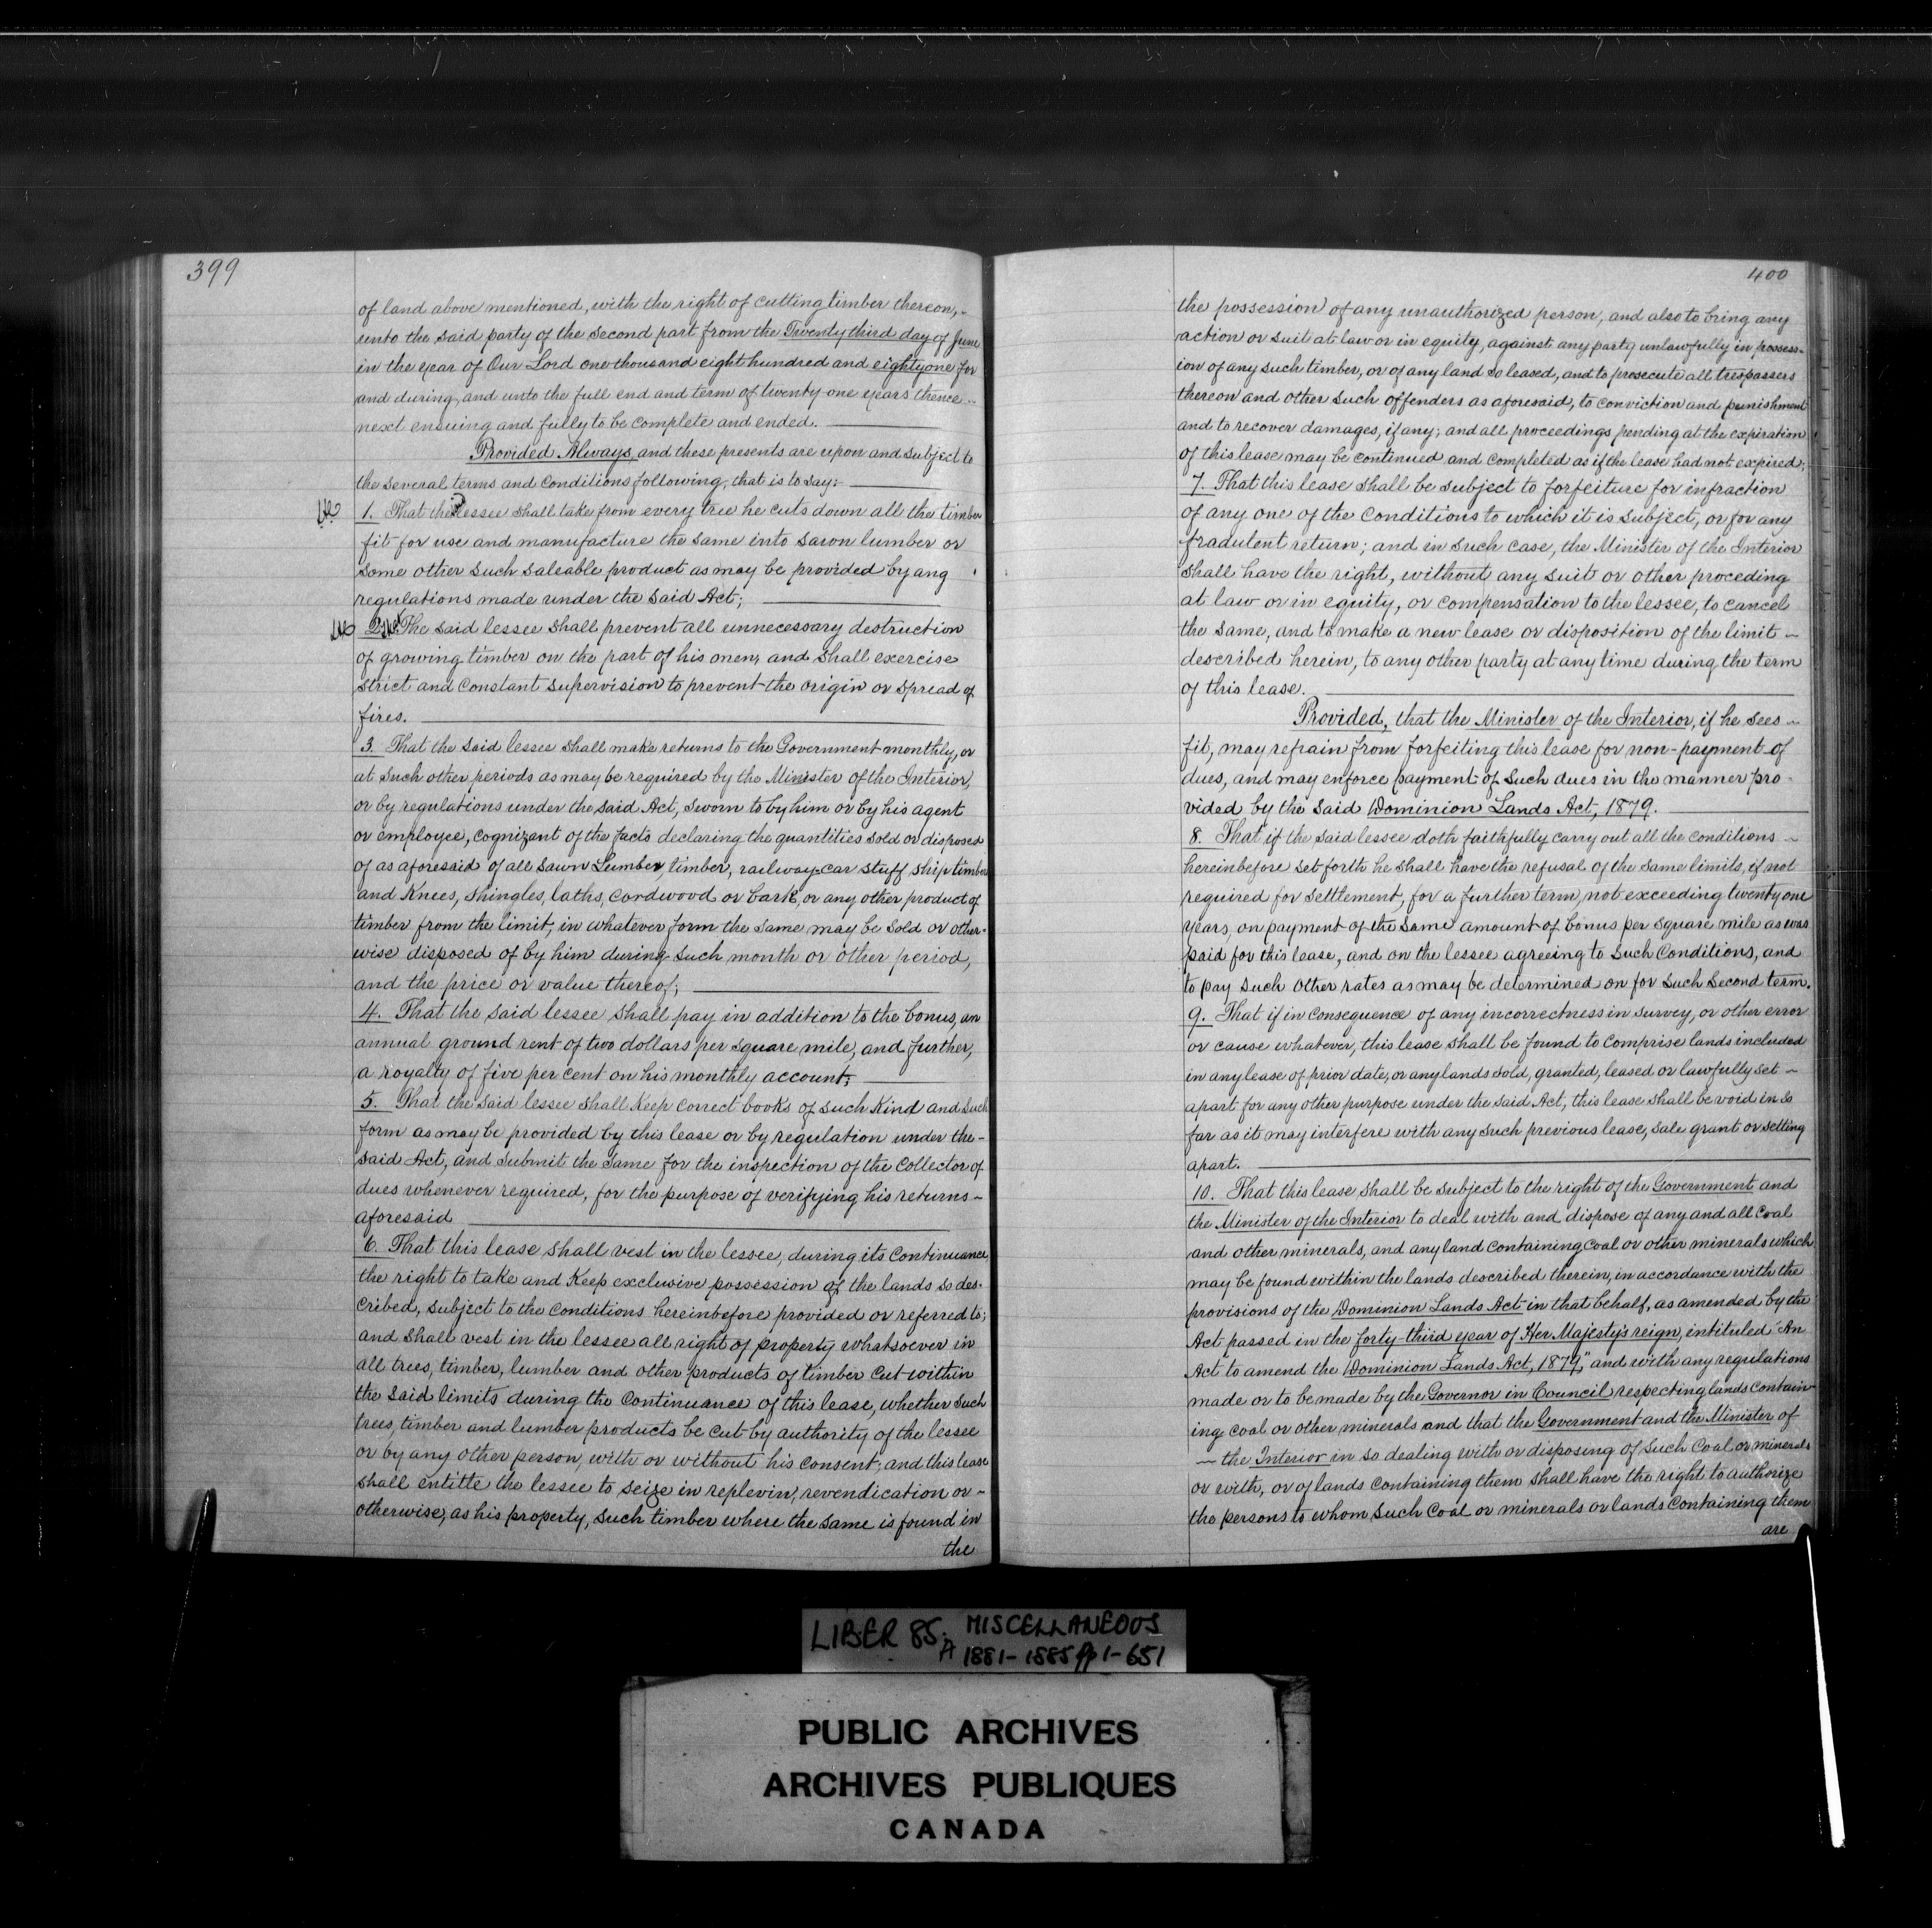 399
of land above mentioned, with the right of cutting timber thereon,-
unto the said party of the second part from the Twenty third day of June
in the year of Our Lord one thousand eight hundred and eighty one for
and during, and unto the full end and term of twenty one years thence -
next ensuing and fully to be complete and ended.
Provided Always, and these presents are upon and subject to
the several terms and conditions following, that is to say:
1. That the lessee shall take from every tree he cuts down all the timber
fit for use and manufacture the same into sawn lumber or
some other such saleable product as may be provided by any
regulations made under the said Act;
2. The said lessee shall prevent all unnecessary destruction
of growing timber on the part of his men, and shall exercise
strict and constant supervision to prevent the origin or spread of
fires.
3. That the said lessee shall make returns to the Government monthly, or
at such other periods as may be required by the Minister of the Interior,
or by regulations under the said Act, sworn to by him or by his agent
or employee, cognizant of the facts declaring the quantities sold or disposed
of as aforesaid of all sawn Lumber, timber, railway-car stuff ship timber
and Knees, shingles, laths, cordwood or bark, or any other product of
timber from the limit, in whatever form the same may be sold or other-
wise disposed of by him during such month or other period,
and the price or value thereof;
4. That the said lessee shall pay in addition to the bonus, an
annual ground rent of two dollars per square mile, and further,
a royalty of five per cent on his monthly account;
5. That the said lessee shall Keep correct books of such Kind and such
form as may be provided by this lease or by regulation under the -
said Act, and submit the same for the inspection of the Collector of
dues whenever required, for the purpose of verifying his returns -
aforesaid
6. That this lease shall vest in the lessee, during its continuance,
the right to take and Keep exclusive possession of the lands so des-
cribed, subject to the conditions hereinbefore provided or referred to;
and shall vest in the lessee all right of property whatsoever in
all trees, timber, lumber and other products of timber cut within
the said limits during the continuance of this lease, whether such
trees, timber and lumber products be cut by authority of the lessee
or by any other person, with or without his consent; and this lease
shall entitle the lessee to seize in replevin, revendication or -
otherwise, as his property, such timber where the same is found in
the
400
the possession of any unauthorized person, and also to bring any
action or suit at law or in equity, against any party unlawfully in possess-
ion of any such timber, or of any land so leased, and to prosecute all trespassers
thereon and other such offenders as aforesaid, to conviction and punishment
and to recover damages, if any; and all proceedings pending at the expiration
of this lease may be continued and completed as if the lease had not expired;
7. That this lease shall be subject to forfeiture for infraction
of any one of the conditions to which it is subject, or for any
fradulent return; and in such case, the Minister of the Interior
shall have the right, without any suit or other proceding
at law or in equity, or compensation to the lessee, to cancel
the same, and to make a new lease or disposition of the limit -
described herein, to any other party at any time during the term
of this lease.
Provided, that the Minister of the Interior, if he sees -
fit, may refrain from forfeiting this lease for non-payment of
dues, and may enforce payment of such dues in the manner pro-
vided by the said Dominion Lands Act, 1879.
8. That if the said lessee doth faithfully carry out all the conditions -
hereinbefore set forth he shall have the refusal of the same limits, if not
required for settlement, for a further term, not exceeding twenty one
years, on payment of the same amount of bonus per square mile as was
paid for this lease, and on the lessee agreeing to such conditions, and
to pay such other rates as may be determined on for such second term.
9. That if in consequence of any incorrectness in survey, or other error
or cause whatever, this lease shall be found to comprise lands included
in any lease of prior date, or any lands sold, granted, leased or lawfully set -
apart for any other purpose under the said Act, this lease shall be void in so
far as it may interfere with any such previous lease, sale grant or setting
apart.
10. That this lease shall be subject to the right of the Government and
the Minister of the Interior to deal with and dispose of any and all coal
and other minerals, and any land containing coal or other minerals which
may be found within the lands described therein, in accordance with the
provisions of the Dominion Lands Act in that behalf, as amended by the
Act passed in the forty-third year of Her Majesty's reign, intituled "An
Act to amend the Dominion Lands Act, 1879," and with any regulations
made or to be made by the Governor in Council respecting lands contain-
ing coal or other minerals and that the Government and the Minister of
- the Interior in so dealing with or disposing of such coal or minerals
or with, or of lands containing them shall have the right to authorize
the persons to whom such coal or minerals or lands containing them
are
LIBER 85. MISCELLANEOUS
A 1881-1885 pp 1-651
PUBLIC ARCHIVES
ARCHIVES PUBLIQUES
CANADA